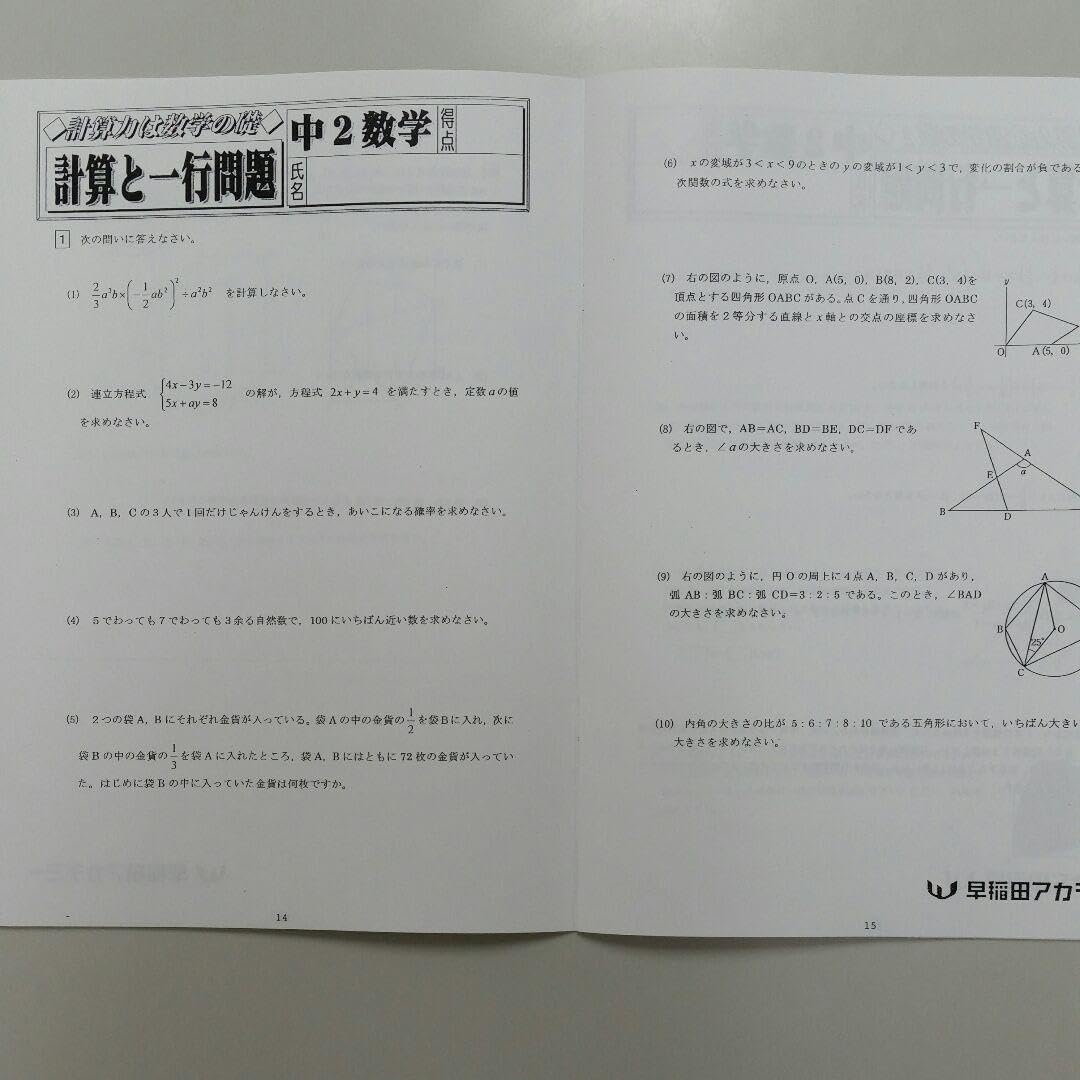 ◇計算力は数学の礎◇
計算と一行問題
中2数学
得点
氏名
1 次の問いに答えなさい。
(1) 2/3 a³b×(-1/2 ab²)²÷a²b² を計算しなさい。
(2) 連立方程式 {4x-3y=-12 の解が，方程式 2x+y=4 を満たすとき，定数aの値
5x+ay=8
を求めなさい。
(3) A，B，Cの3人で1回だけじゃんけんをするとき，あいこになる確率を求めなさい。
(4) 5でわっても7でわっても3余る自然数で，100にいちばん近い数を求めなさい。
(5) 2つの袋A，Bにそれぞれ金貨が入っている。袋Aの中の金貨の1/2を袋Bに入れ，次に
袋Bの中の金貨の1/3を袋Aに入れたところ，袋A，Bにはともに72枚の金貨が入ってい
た。はじめに袋Bの中に入っていた金貨は何枚ですか。
14
(6) xの変域が3<x<9のときのyの変域が1<y<3で，変化の割合が負である
次関数の式を求めなさい。
(7) 右の図のように，原点O，A(5，0)，B(8，2)，C(3，4)を
頂点とする四角形OABCがある。点Cを通り，四角形OABC
の面積を2等分する直線とx軸との交点の座標を求めなさ
い。
y
C(3，4)
O
A(5，0)
(8) 右の図で，AB=AC，BD=BE，DC=DFであ
るとき，∠aの大きさを求めなさい。
F
A
E
a
B
D
(9) 右の図のように，円Oの周上に4点A，B，C，Dがあり，
弧AB：弧BC：弧CD=3：2：5である。このとき，∠BAD
の大きさを求めなさい。
A
B
O
25°
C
(10) 内角の大きさの比が5：6：7：8：10である五角形において，いちばん大きい
大きさを求めなさい。
早稲田アカ
15